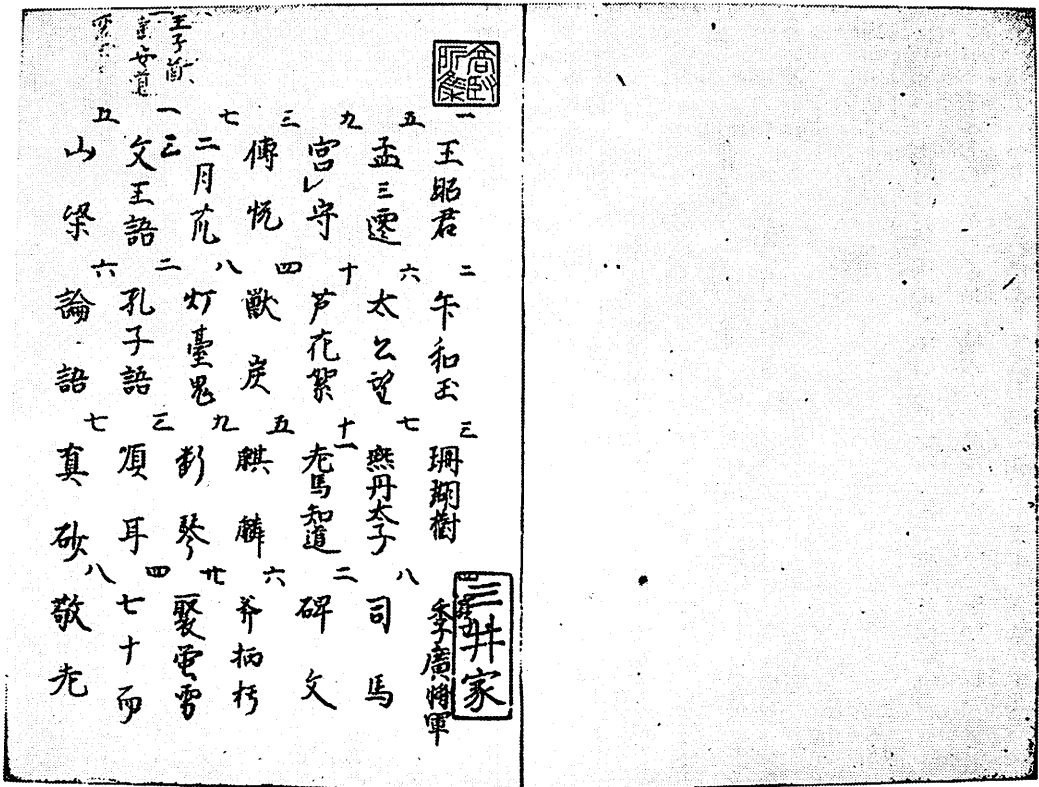 一 王昭君 二 卞和玉 三 珊瑚樹 四 李廣将軍
五 孟三遷 六 太公望 七 燕丹太子 八 司馬
九 宮レ守 十 芦花絮 十一 老馬知道 二 碑文
三 傳悦 四 獣炭 五 麒麟 六 斧柄朽
七 二月瓜 八 灯臺鬼 九 琴 廿 聚蛍雪
一 文王語 二 孔子語 三 耳 四 七十而
五 山梁 六 論語 七 真砂 八 敬老
王子猷
安道
三井家